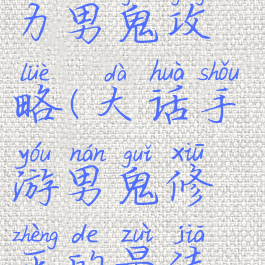 力男鬼攻
lüè dà huà shǒu
略(大话手
yóu nán guǐ xiū
游男鬼修
zhèng de zuì jiā
正的最佳